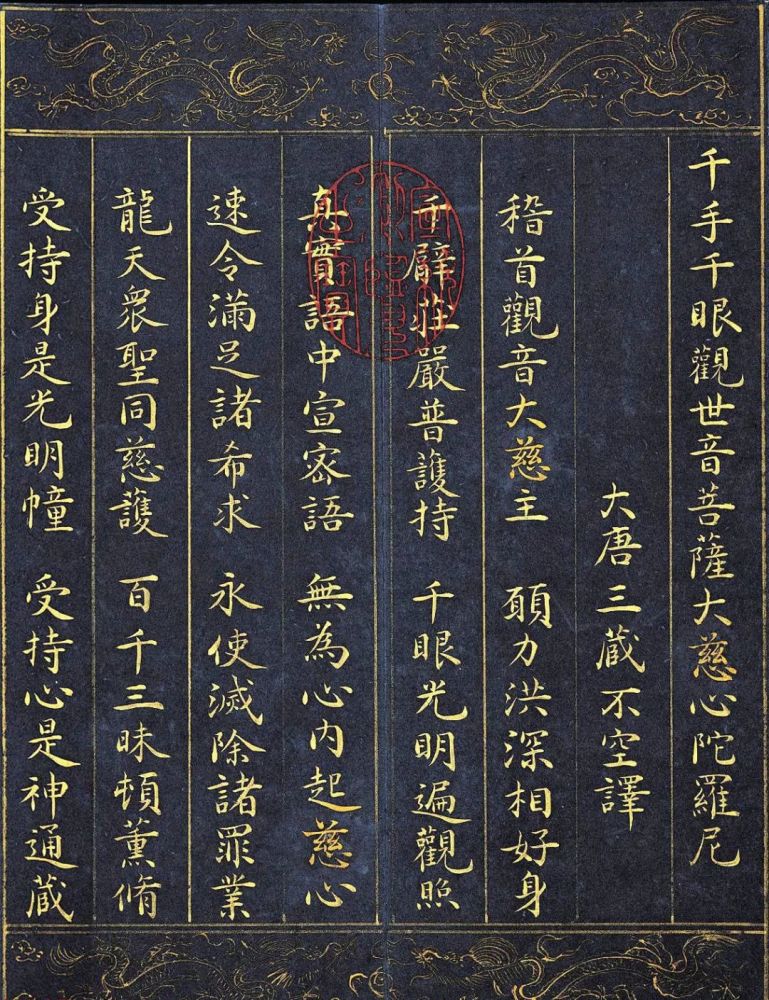 千手千眼觀世音菩薩大慈心陀羅尼
大唐三藏不空譯
稽首觀音大慈主 願力洪深相好身
千臂莊嚴普護持 千眼光明遍觀照
真實語中宣密語 無為心內起慈心
速令滿足諸希求 永使滅除諸罪業
龍天眾聖同慈護 百千三昧頓薰脩
受持身是光明幢 受持心是神通藏